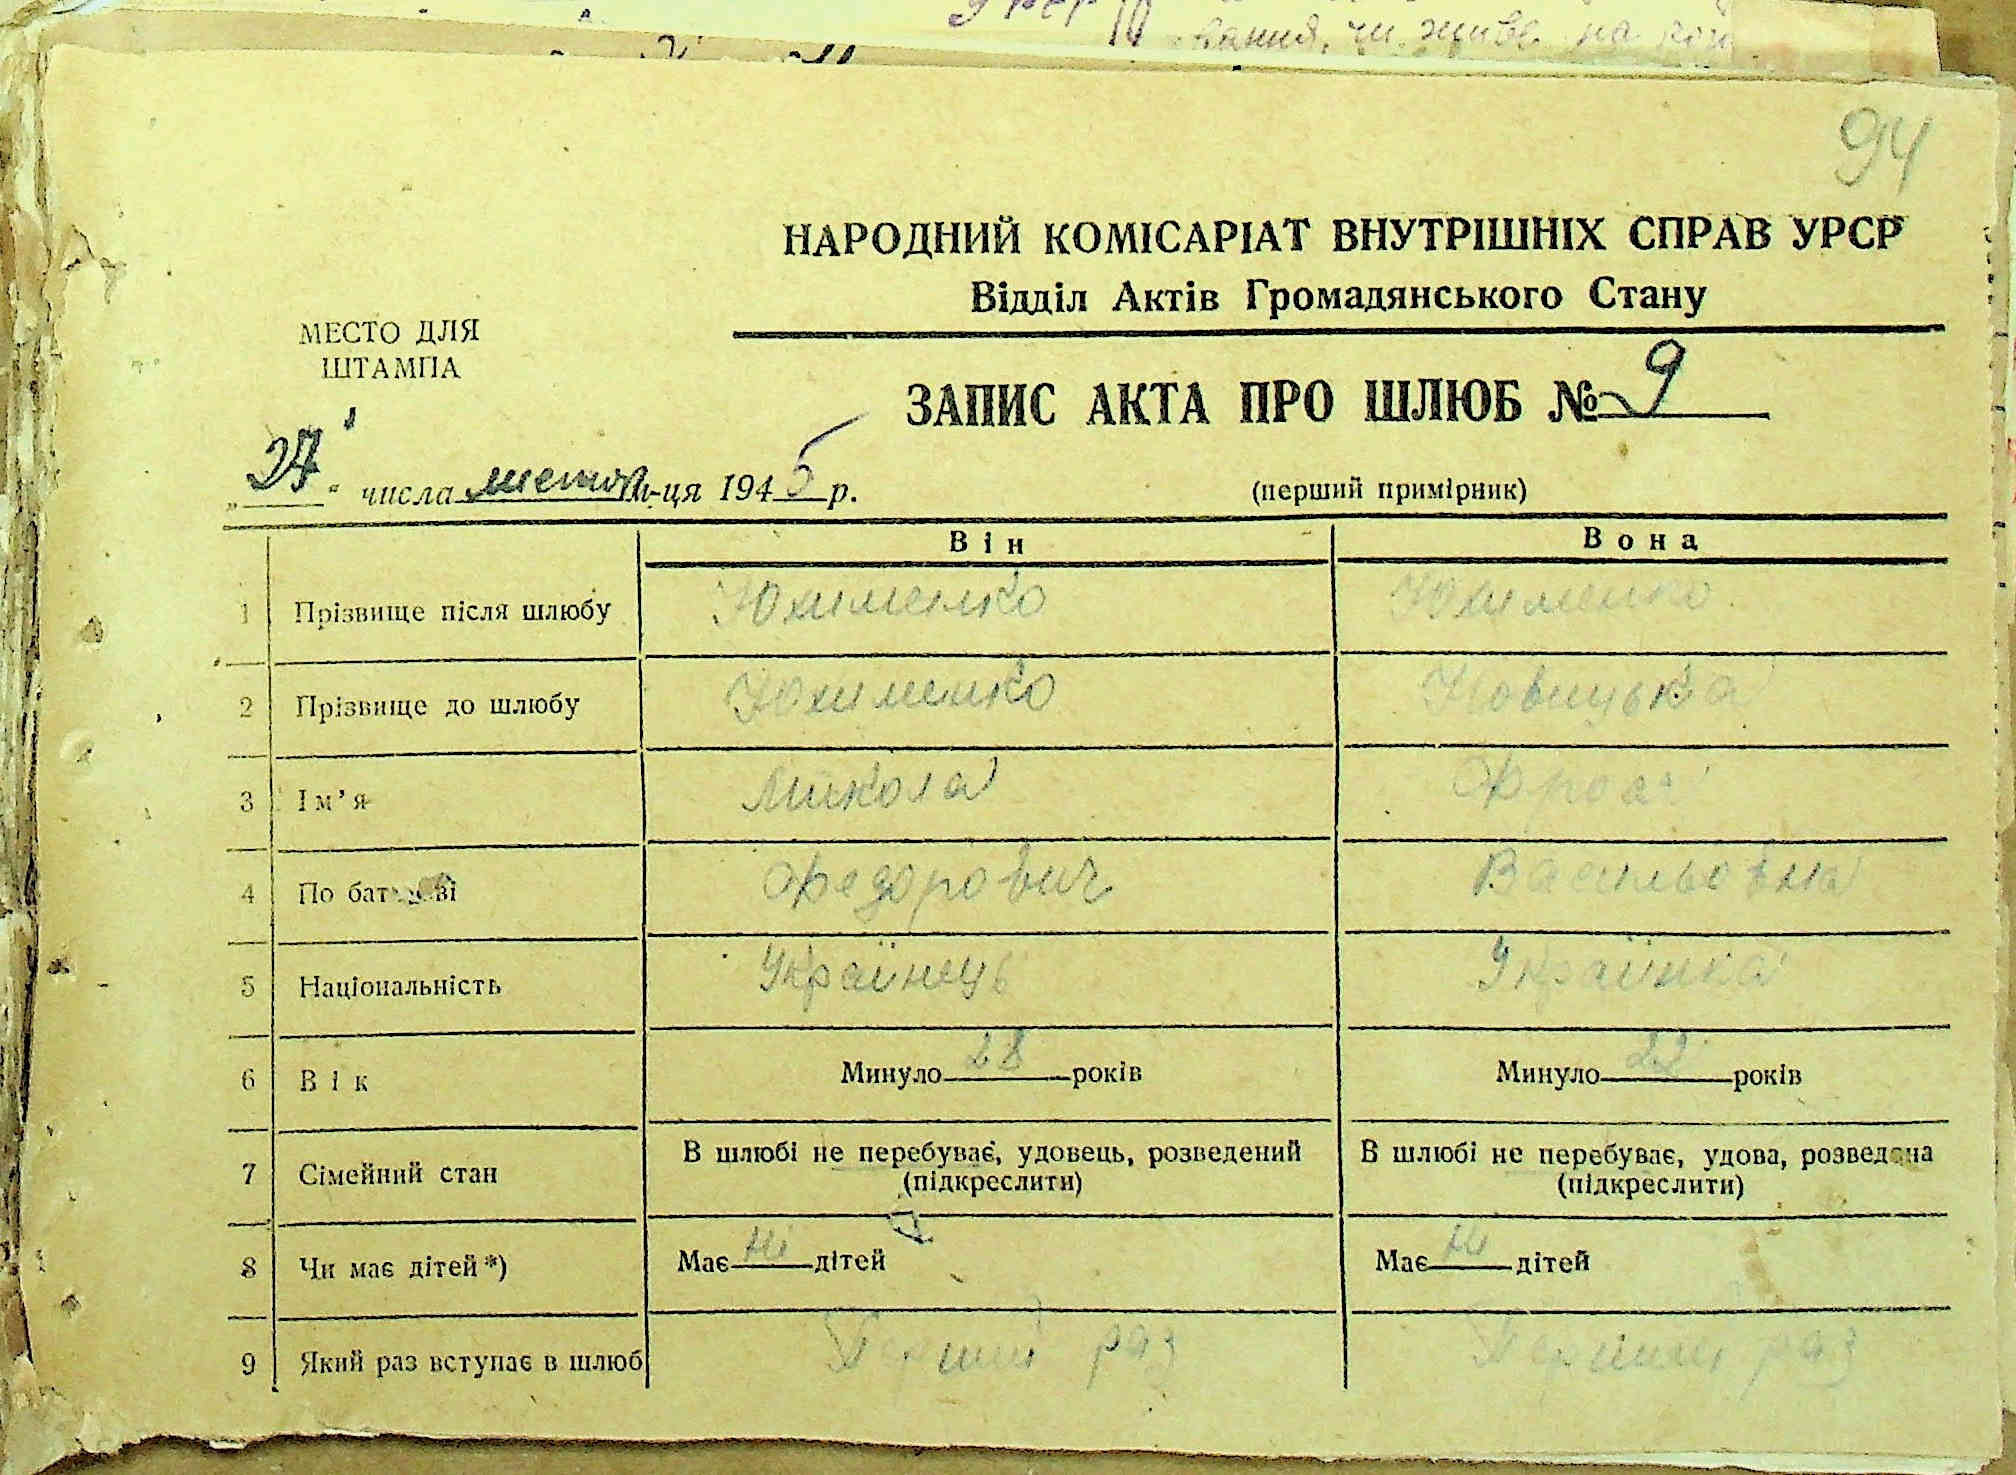 вання, чи живе на
94
НАРОДНИЙ КОМІСАРІАТ ВНУТРІШНІХ СПРАВ УРСР
Відділ Актів Громадянського Стану
МЕСТО ДЛЯ
ШТАМПА
ЗАПИС АКТА ПРО ШЛЮБ № 9
„27“ числа м-ця 1945 р.
(перший примірник)
Він Вона
1 Прізвище після шлюбу Юхименко Юхименко
2 Прізвище до шлюбу Юхименко Новицька
3 Ім’я Микола
4 По батькові Федорович Васильовна
5 Національність Українець Українка
6 Вік Минуло 28 років Минуло 22 років
7 Сімейний стан В шлюбі не перебуває, удовець, розведений (підкреслити) В шлюбі не перебуває, удова, розведена (підкреслити)
8 Чи має дітей*) Має Ні дітей Має Ні дітей
9 Який раз вступає в шлюб Перший раз Перший раз